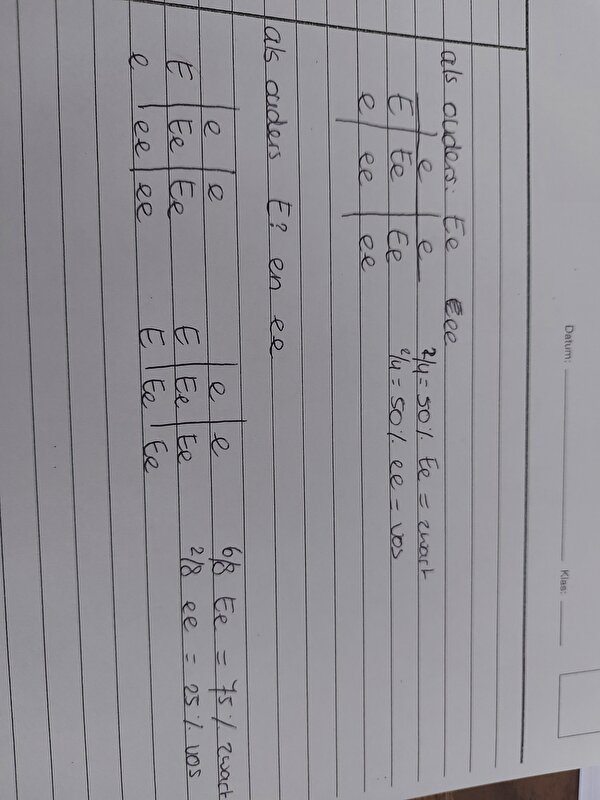 Datum:
Klas:
als ouders: Ee eee
e e
E Ee Ee
e ee ee
2/4 = 50% Ee = zwart
2/4 = 50% ee = vos
als ouders E? en ee
e e
E Ee Ee
e ee ee
e e
E Ee Ee
E Ee Ee
6/8 Ee = 75% zwart
2/8 ee = 25% vos